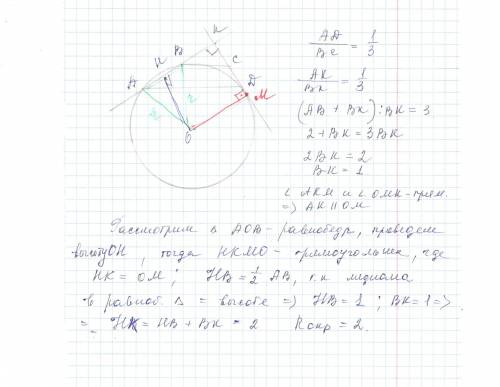 К
В
Н
А
С
D
М
О
r
r
AD/BC = 1/3
AK/BK = 1/3
(AB + BK) : BK = 3
2 + BK = 3BK
2BK = 2
BK = 1
∠ AKM и ∠ OMK - прям.
=> AK || OM
Рассмотрим Δ AOB - равнобедр, проведем
высоту OH, тогда HKMO - прямоугольник, где
HK = OM ; HB = 1/2 AB, т.к медиана
в равноб. Δ = высоте => HB = 1 ; BK = 1 =>
= HK = HB + BK = 2 Rокр = 2.